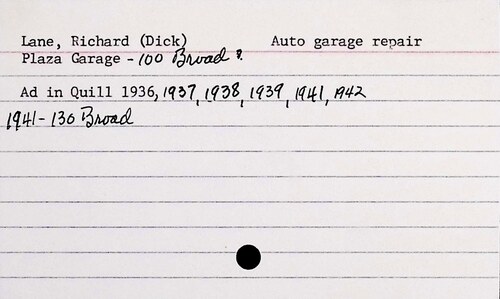 Lane, Richard (Dick) Auto garage repair
Plaza Garage - 100 Broad ?
Ad in Quill 1936, 1937, 1938, 1939, 1941, 1942
1941 - 130 Broad